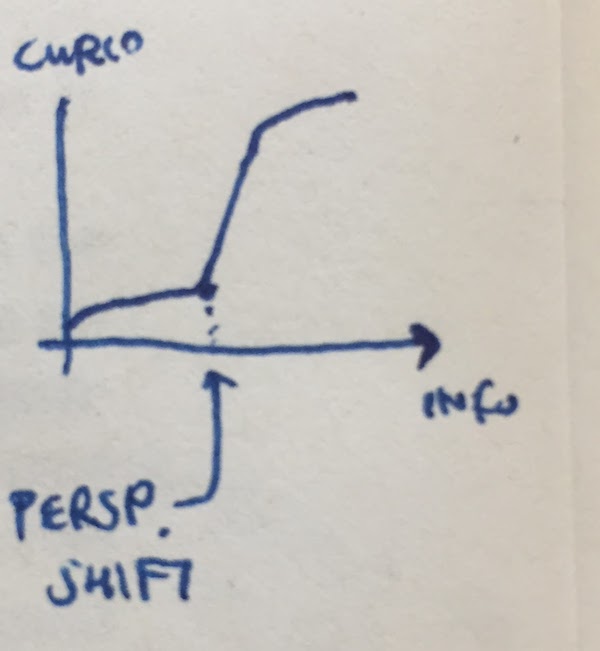 CURIO
INFO
PERSP.
SHIFT